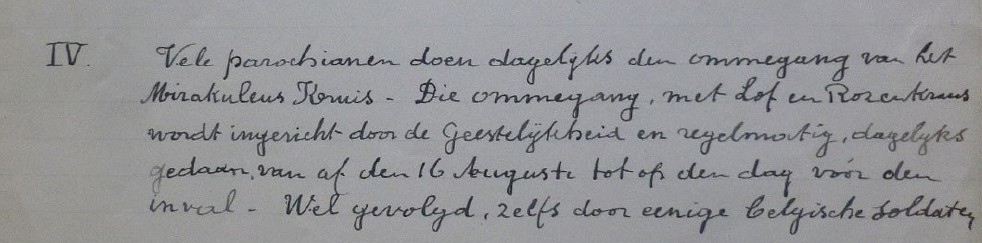 IV. Vele parochianen doen dagelyks den ommegang van het
Mirakuleus Kruis - Die ommegang, met Lof en Rozenkrans
wordt ingericht door de Geestelijkheid en regelmatig, dagelyks
gedaan, van af den 16 Auguste tot op den dag vóór den
inval - Wel gevolgd, zelfs door eenige belgische soldaten